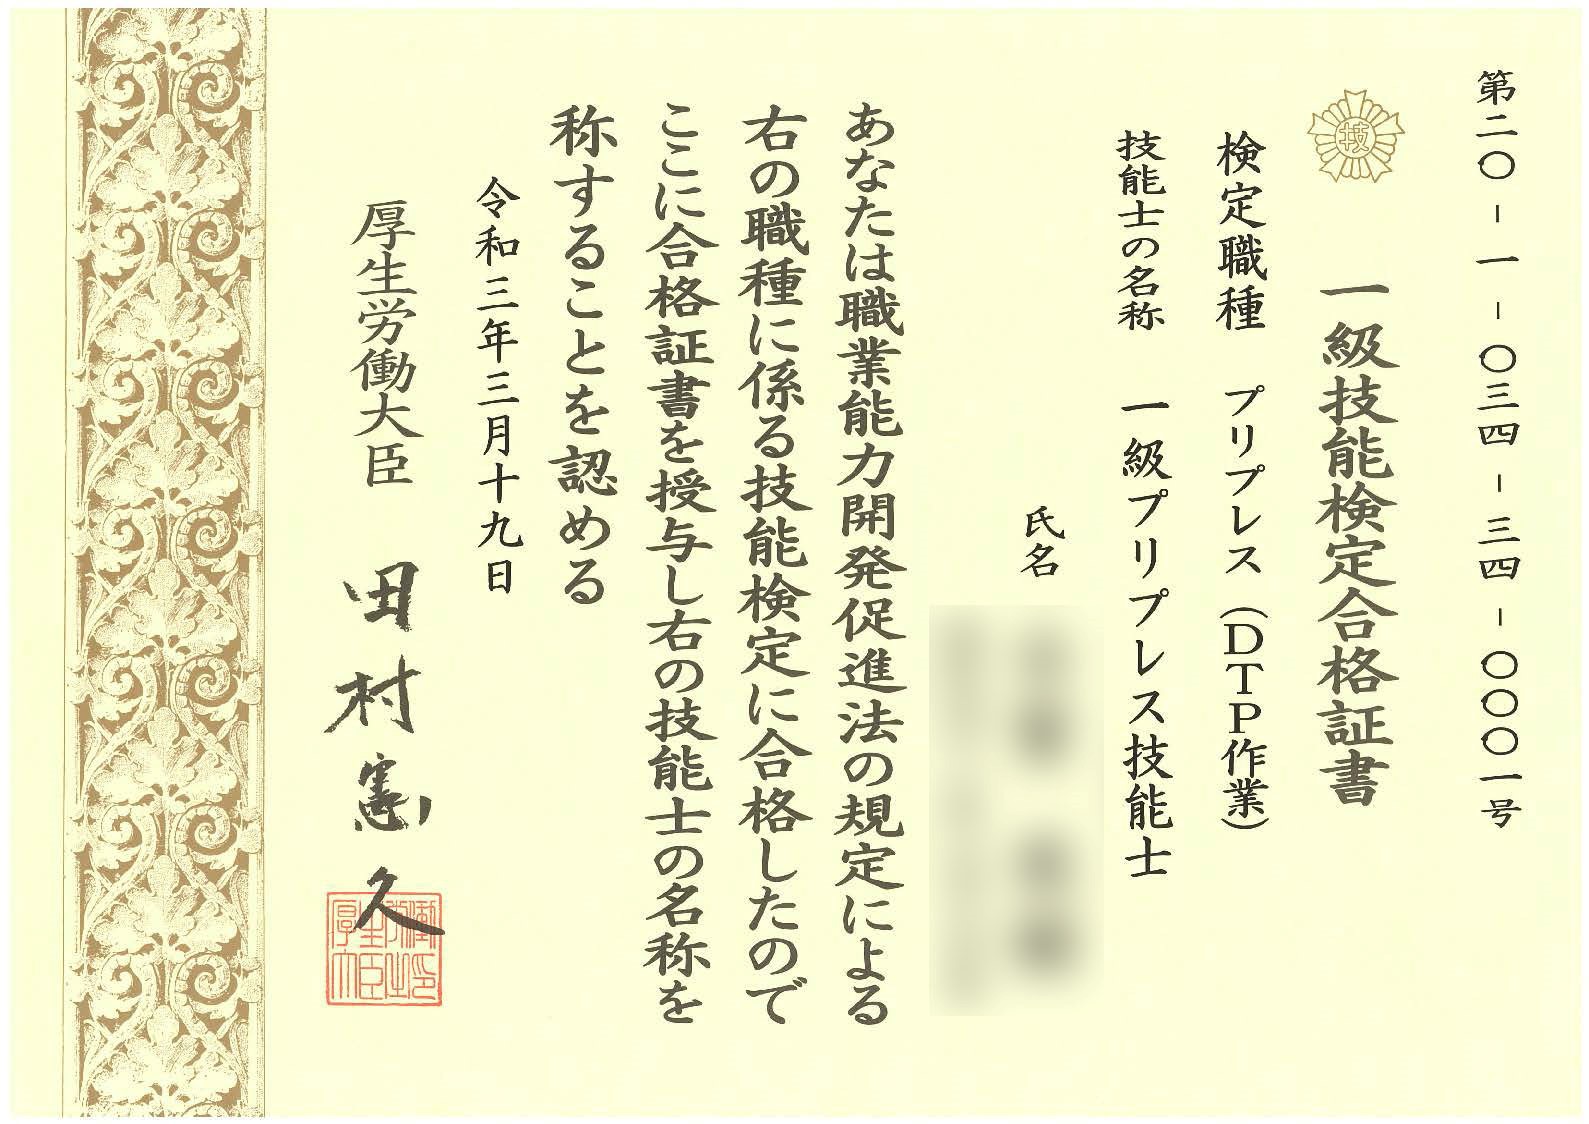 第二〇-一-〇三四-三四-〇〇〇一号
技
一級技能検定合格証書
検定職種 プリプレス(DTP作業)
技能士の名称 一級プリプレス技能士
氏名
あなたは職業能力開発促進法の規定による
右の職種に係る技能検定に合格したので
ここに合格証書を授与し右の技能士の名称を
称することを認める
令和三年三月十九日
厚生労働大臣 田村憲久